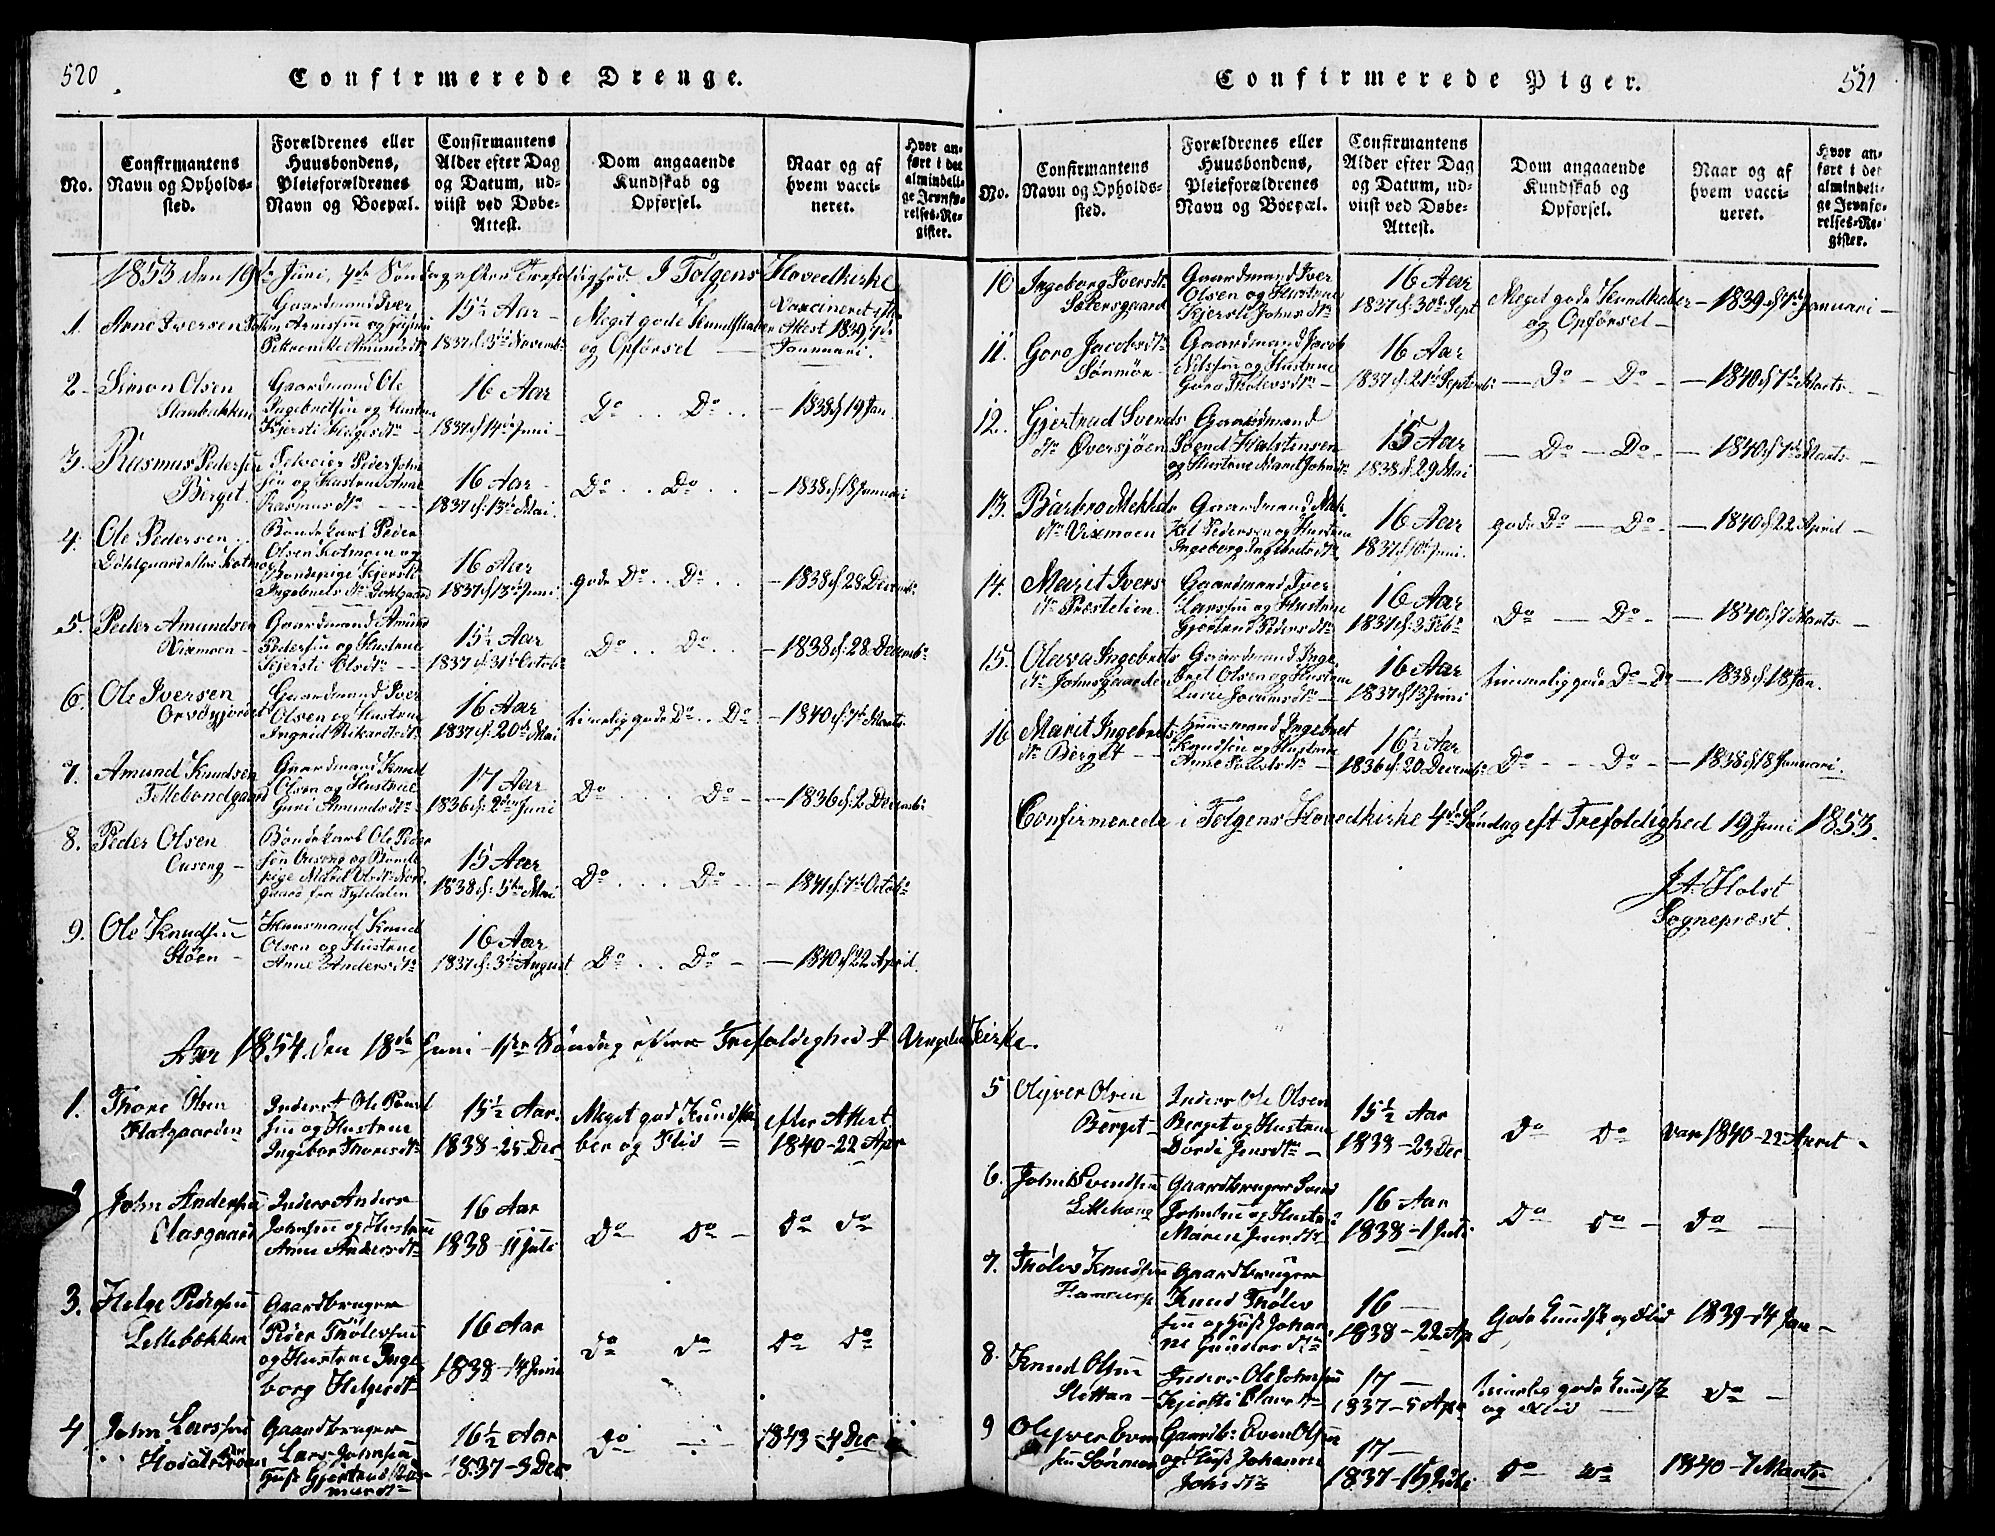 520
Confirmerede Drenge.
No.
Confirmantens
Navn og Opholds-
sted.
Forældrenes eller
Huusbondens,
Pleieforældrenes
Navn og Boepæl.
Confirmantens
Alder efter Dag
og Datum, ud-
viist ved Døbe-
Attest.
Dom angaaende
Kundskab og
Opførsel.
Naar og af
hvem vacci-
neret.
Hvor an-
ført i det
almindeli-
ge Jevnfø-
relses-Re-
gister.
1853 den 19de Juni, 4de Søndag efter Trefoldighed I Tolgens Hovedkirke
1.
Arne Iversen
Gaardmand Iver
15½ Aar
1837 d: 3die Novembr
Meget gode Kundskaber
og Opførsel
Vaccineret eft.
Attest 1839, 7de
Januari.
2.
Simon Olsen
Gaardmand Ole
Ingebretsen og Hustrue
Kjersti Helgesdtr
16 Aar
1837 d: 14de Juni
Do . . Do . .
1838 d: 19 Jan.
3.
Rasmus Pedersen
Berget.
Peder John
sen og Hustrue Anne
Rasmusdtr
16 Aar
1837 d: 13de Mai.
Do . . Do . .
1838 d: 18 Januari
4.
Ole Pedersen
Bondekarl Peder
Olsen Kotmoen og
Bondepige Kjersti
Ingebretsdtr
16 Aar
1837 d: 13de Juni.
gode Do . . Do . .
1838 d: 28 Decembr
5.
Peder Amundsen
Vixmoen
Gaardmand Amund
Pedersen og Hustrue
Kjersti Olsdtr
15½ Aar
1837 d: 31te Octobr
Do . . Do . .
1838 d: 28 Decembr
6.
Ole Iversen
Gaardmand Iver
Olsen og Hustrue
Ingrid Rikardsdtr
16 Aar
1837 d: 20de Mai
timelig gode Do . . Do
1840 d: 7de Marts
7.
Amund Knudsen
Gaardmand Knud
Olsen og Hustrue
Guri Amundsdtr
17 Aar
1836 d: 2den Juni
Do . . . Do
1836 d: 2 Decembr
8.
Peder Olsen
Ouseng
Bondekarl Ole Peder
sen Ouseng og Bonde
pige Marit Olsdtr Nord
gaard fra Tyldalen
15 Aar
1838 d: 5te Mai
Do . . . Do
1841 d: 7de Octobr
9.
Ole Knudsen
Støen
Huusmand Knud
Olsen og Hustrue
Anne Andersdtr
16 Aar
1837 d: 3die August
Do . . Do
1840 d: 22 April.
Aar 1854 den 18de Juni 1ste Søndag efter Trefoldighed I Vingelen Kirke.
1.
Thore Olsen
Flatgaarden
Inderst Ole Povel
sen og Hustrue
Ingebor Thoresdtr
15½ Aar.
1838 - 25 Dec
Meget god Kundska
ber og Flid
efter Attest
1840 - 22 Apr
John Andersen
Claasgaard
Inders Anders
Johnsen og Hustrue
Anne Andersdtr
16 Aar
1838 - 11 Juli
Do Do
Do Do
3.
Helge Pedersen
Lillebækken
Gaardbruger
Peder Thølevsen
og Hustrue Inge
borg Helgesdtr
16 Aar
1838 - 14 Juni
Do Do
Do Do
4
John Larssen
Gaardbruger
Lars Johnsen
16½ Aar
1837 - 3 Dec
Do
1843 - 4 Dec
521
Confirmerede Piger.
No.
Confirmantens
Navn og Opholds-
sted.
Forældrenes eller
Huusbondens,
Pleieforældrenes
Navn og Boepæl.
Confirmantens
Alder efter Dag
og Datum, ud-
viist ved Døbe-
Attest.
Dom angaaende
Kundskab og
Opførsel.
Naar og af
hvem vacci-
neret.
Hvor an-
ført i det
almindeli-
ge Jevnfø-
relses-Re-
gister.
10
Ingeborg Iversdtr
Sætersgaard
Gaardmand Iver
Olsen og Hustrue
Kjersti Johnsdtr
16 Aar
1837 d: 30te Sept
Meget gode Kundskaber
og Opførsel
1839 d: 7de Januari
11.
Goro Jacobsdtr
Sønmør
Gaardmand Jacob
Nilssen og Hustrue
Goro Thølevsdtr
16 Aar
1837 d: 21de Septembr
Do Do
1840 d: 7de Marts
12.
Gjertrud Svends
dtr Øversjøen
Gaardmand
Svend Halstensen
og Hustrue Marit Johnsdtr
15 Aar
1838 d: 29 Mai
Do Do
1840 d: 7de Marts
13.
Barbro Mekkels
dtr Vixmoen
Gaardmand Mek
kel Pedersen og Hustrue
Ingeborg Ingebretsdtr
16 Aar
1837 d: 10de Juni.
gode Do Do
1840 d: 22 April
14.
Marit Ivers
dtr Præstelien.
Gaardmand Iver
Larssen og Hustrue
Gjertrud Pedersdtr
16 Aar
1837 d: 3 Febr
Do Do
1840 d: 7 Marts
15.
Olava Ingebrets
dtr Johnsgaarden
Gaardmand Inge
bret Olsen og Hustrue
16 Aar
1837 d: 13 Juni
timmelig gode Do Do
1838 d: 18 Jan.
16
Marit Ingebrets
dtr Berget
Huusmand Ingebret
Knudsen og Hustrue
16½ Aar
1836 d: 20 Decembr
Do Do
1838 d: 18 Januari.
Confirmerede i Tolgens Hovedkirke 4de Søndag eft Trefoldighed 19 Juni 1853.
J. A. Holst
Sognepræst.
5
Olyver Olsen
Berget
Inders Ole Olsen
Berget og Hustrue
Dordi Jensdtr
15½ Aar
1838 - 23 Dec
Do Do
Vac 1840 - 22 April
6.
John Svendsen
Gaardbruger Svend
Johnsen og Hustrue
Maren Jensdtr
16 Aar
1838 - 1 Juli
Do Do
Do
7.
Thølev Knudsen
Gaardbruger
Knud Thølev
sen og Hust Johan
ne Gundersdtr
16
1838 - 22 Ap
Gode Kundsk og Flid
1839 - 14 Jan
8.
Knud Olsen
Sletten
Inders Ole Johnsen
17
1837 - 5 Apr
timelig gode Kundsk
og Flid
Do
9
Olyver Even
sen Sønmør
Gaardb: Even Olsen
og Hust Johanne
Johsdtr
17
1837 - 15 Juli
Do Do
1840 - 7 Marts